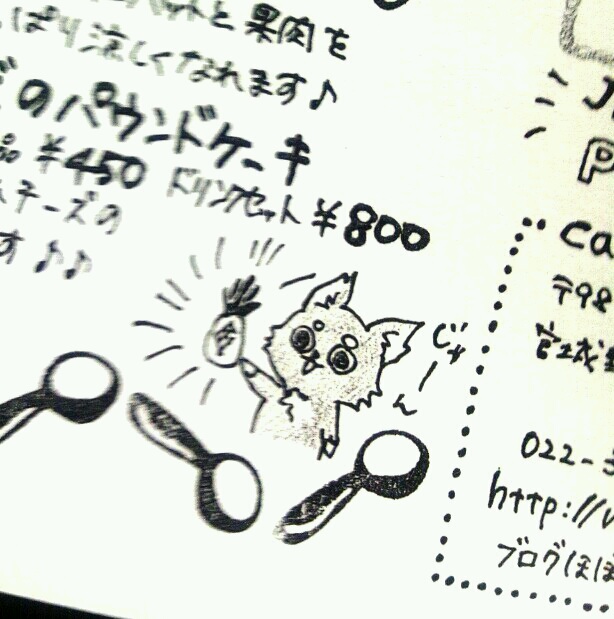 と果肉を
ぱり涼しくなれます♪
のパウンドケーキ
品 ¥450 ドリンクセット ¥800
チーズの
す♪♪
じゃーん
P
ca
〒98
宮城
022-
http://
ブログほぼ